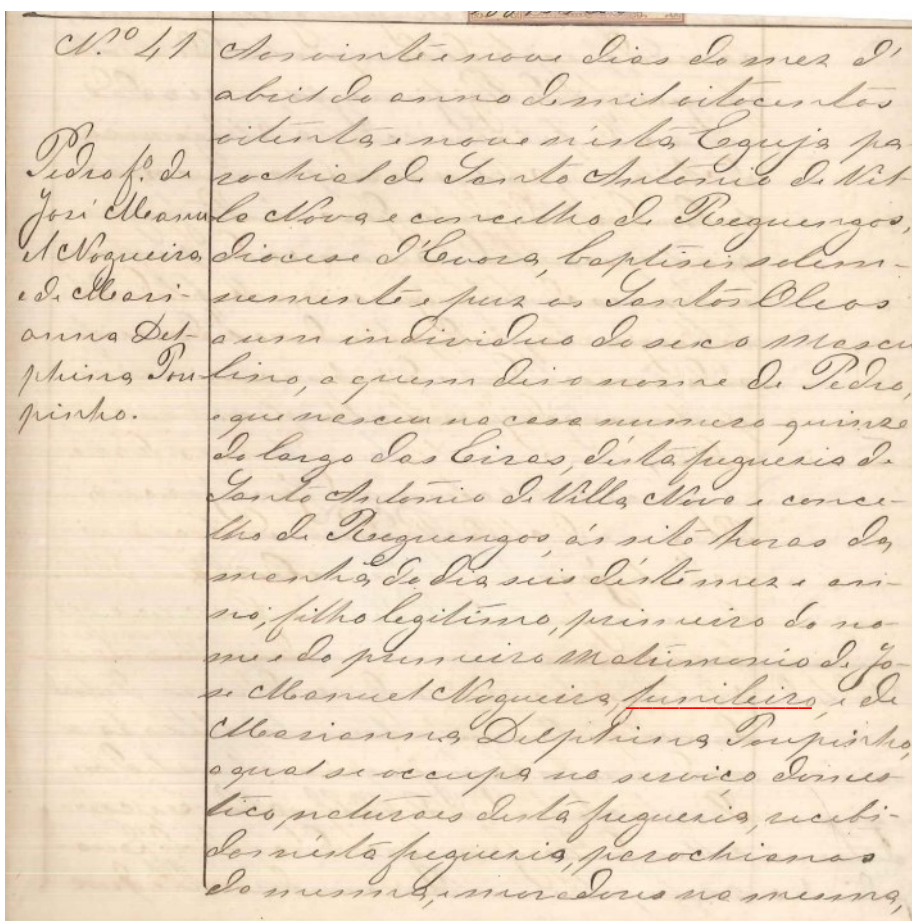 N.º 41
Pedro f.º de
José Manu
el Nogueira
e de Mari-
anna Del-
phina Pou-
pinho.
Aos vinte e nove dias do mez d'
abril do anno de mil oitocentos
oitenta e nove n'ésta Egreja pa-
rochial de Santo Antonio de Vil-
la Nova e concelho de Reguengos,
diocese d'Evora, baptisei solem-
nemente e puz os Santos Oleos
a um individuo do sexo mascu
lino, a quem dei o nome de Pedro,
e que nasceu na casa numero quinze
do largo das Eiras, d'ésta freguezia de
Santo Antonio de Villa Nova e conce-
lho de Reguengos, ás sete horas da
manhã do dia seis d'éste mez e an-
no; filho legitimo, primeiro do no-
me e do primeiro matrimonio de Jo-
sé Manuel Nogueira, funileiro, e de
Marianna Delphina Poupinho,
a qual se occupa no serviço domes
tico, naturaes d'ésta freguezia, recebi-
dos n'ésta freguezia, parochianos
da mesma, e moradores na mesma,